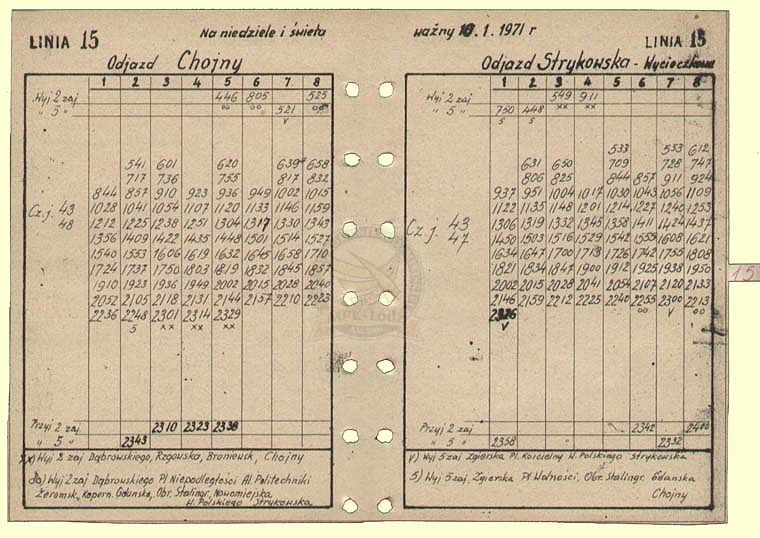 LINIA 15
Na niedziele i święta
Odjazd Chojny
1 2 3 4 5 6 7 8
Wyj 2 zaj 446 805 525
" 5 " oo oo 521 oo
v
541 601 620 639 658
717 736 755 817 832
844 857 910 923 936 949 1002 1015
Cz. j. 43 1028 1041 1054 1107 1120 1133 1146 1159
48 1212 1225 1238 1251 1304 1317 1330 1343
1356 1409 1422 1435 1448 1501 1514 1527
1540 1553 1606 1619 1632 1645 1658 1710
1724 1737 1750 1803 1819 1832 1845 1857
1910 1923 1936 1949 2002 2015 2028 2040
2052 2105 2118 2131 2144 2157 2210 2223
2236 2248 2301 2314 2329
5 xx xx xx
Przyj 2 zaj 2310 2323 2338
" 5 " 2343
xx) Wyj 2 zaj Dąbrowskiego, Rzgowska, Broniewsk, Chojny
oo) Wyj 2 zaj Dąbrowskiego Pl Niepodległości Al. Politechniki
Żeromsk, Kopern. Gdańska, Obr. Stalingr, Nowomiejska
W. Polskiego Strykowska
ważny 10.1.1971 r
LINIA 15
Odjazd Strykowska - Wycieczkowa
1 2 3 4 5 6 7 8
Wyj 2 zaj 549 911
" 5 " 750 448 xx xx
5 5
533 553 612
631 650 709 728 747
806 825 844 857 911 924
937 951 1004 1017 1030 1043 1056 1109
1122 1135 1148 1201 1214 1227 1240 1253
Cz. j. 43 1306 1319 1332 1345 1358 1411 1424 1437
47 1450 1503 1516 1529 1542 1555 1608 1621
1634 1647 1700 1713 1726 1742 1755 1808
1821 1834 1847 1900 1912 1925 1938 1950
2002 2015 2028 2041 2054 2107 2120 2133
2146 2159 2212 2225 2240 2255 2300 2213
2326 oo v oo
v
Przyj 2 zaj 2342 2400
" 5 " 2358 2332
v) Wyj 5 zaj Zgierska Pl. Kościelny W. Polskiego Strykowska
5) Wyj 5 zaj. Zgierska Pl Wolności, Obr. Stalingr. Gdańska
Chojny
15
MPK-Łódź